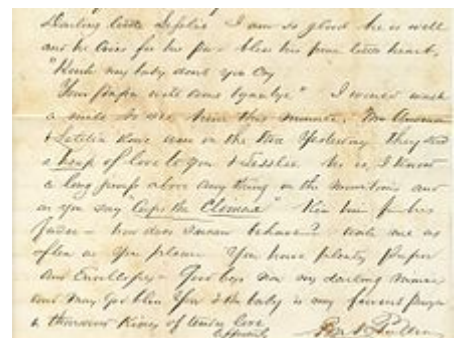 Darling little Lesslie I am so glad he is well
and he cares for his pa - bless his poor little heart,
"Hush my baby don't you cry
Your papa will come by and bye" I would walk
a mile to see him this minute. Mrs
& Letitia were on the Yesterday They send
a heap of love to you & Lesslie. he is, I know
a long jump above any thing on the and
as you say "Caps the Climax" Kiss him for his
father - how does behave? write me as
often as you please You have plenty paper
and Envellopes - Good bye now my darling
and may God bless you & the baby is my fervent prayer
a thousand kisses of tender love